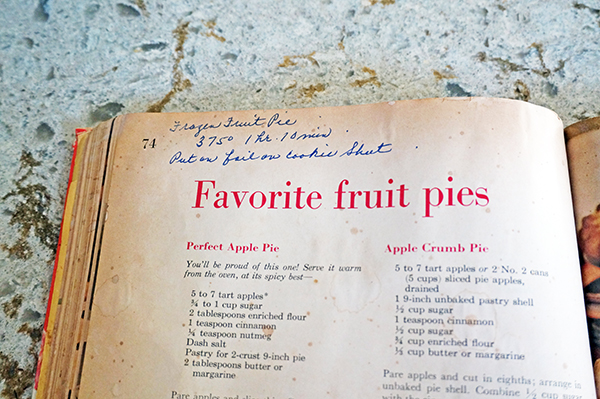 74
Frozen Fruit Pie
375° 1 hr. 10 min
Put on foil on cookie Sheet
Favorite fruit pies
Perfect Apple Pie
You'll be proud of this one! Serve it warm
from the oven, at its spicy best—
5 to 7 tart apples*
¾ to 1 cup sugar
2 tablespoons enriched flour
1 teaspoon cinnamon
¼ teaspoon nutmeg
Dash salt
Pastry for 2-crust 9-inch pie
2 tablespoons butter or
margarine
Pare apples and
Apple Crumb Pie
5 to 7 tart apples or 2 No. 2 cans
(5 cups) sliced pie apples,
drained
1 9-inch unbaked pastry shell
½ cup sugar
1 teaspoon cinnamon
½ cup sugar
¾ cup enriched flour
⅓ cup butter or margarine
Pare apples and cut in eighths; arrange in
unbaked pie shell. Combine ½ cup sugar